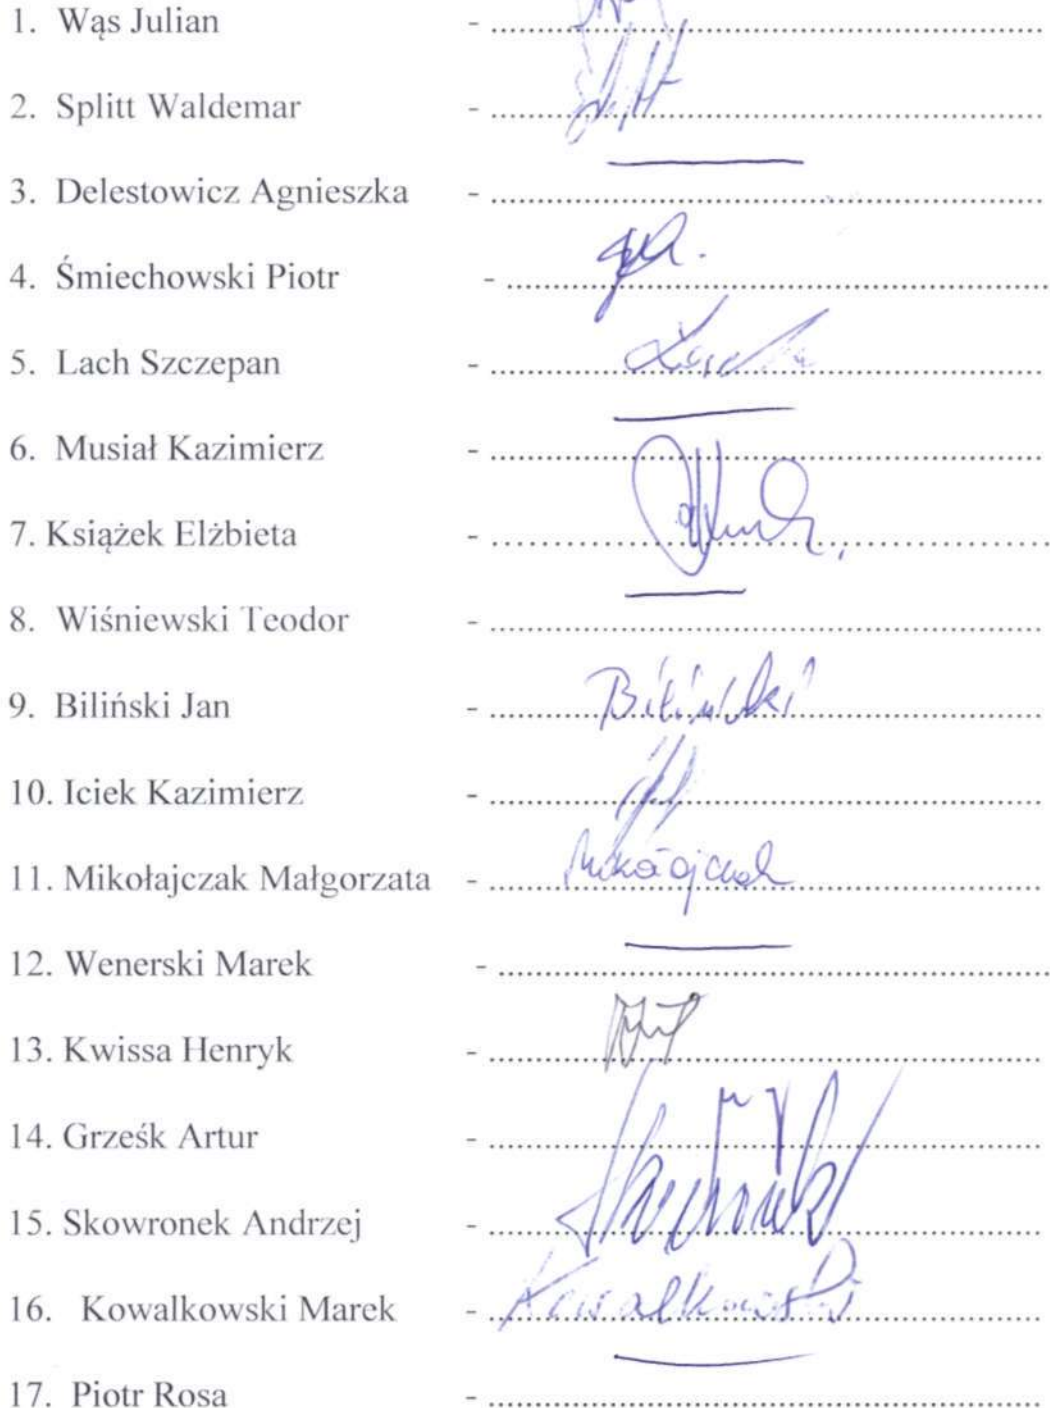 1. Wąs Julian - ........................................................
2. Splitt Waldemar - ........................................................ Splitt
3. Delestowicz Agnieszka - ........................................................
4. Śmiechowski Piotr - ........................................................
5. Lach Szczepan - ........................................................ Lach
6. Musiał Kazimierz - ........................................................
7. Książek Elżbieta - ........................................................
8. Wiśniewski Teodor - ........................................................
9. Biliński Jan - ........................................................ Biliński
10. Iciek Kazimierz - ........................................................
11. Mikołajczak Małgorzata - ........................................................ Mikołajczak
12. Wenerski Marek - ........................................................
13. Kwissa Henryk - ........................................................
14. Grześk Artur - ........................................................
15. Skowronek Andrzej - ........................................................ Skowronek
16. Kowalkowski Marek - ........................................................ Kowalkowski
17. Piotr Rosa - ........................................................